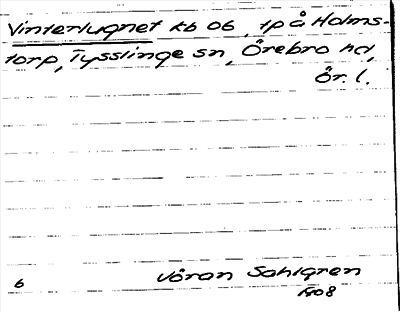 Vinterlugnet kb 06, tp å Holms-
torp, Tysslinge sn, Örebro hd,
Ör. l.
Jöran Sahlgren
6
1908